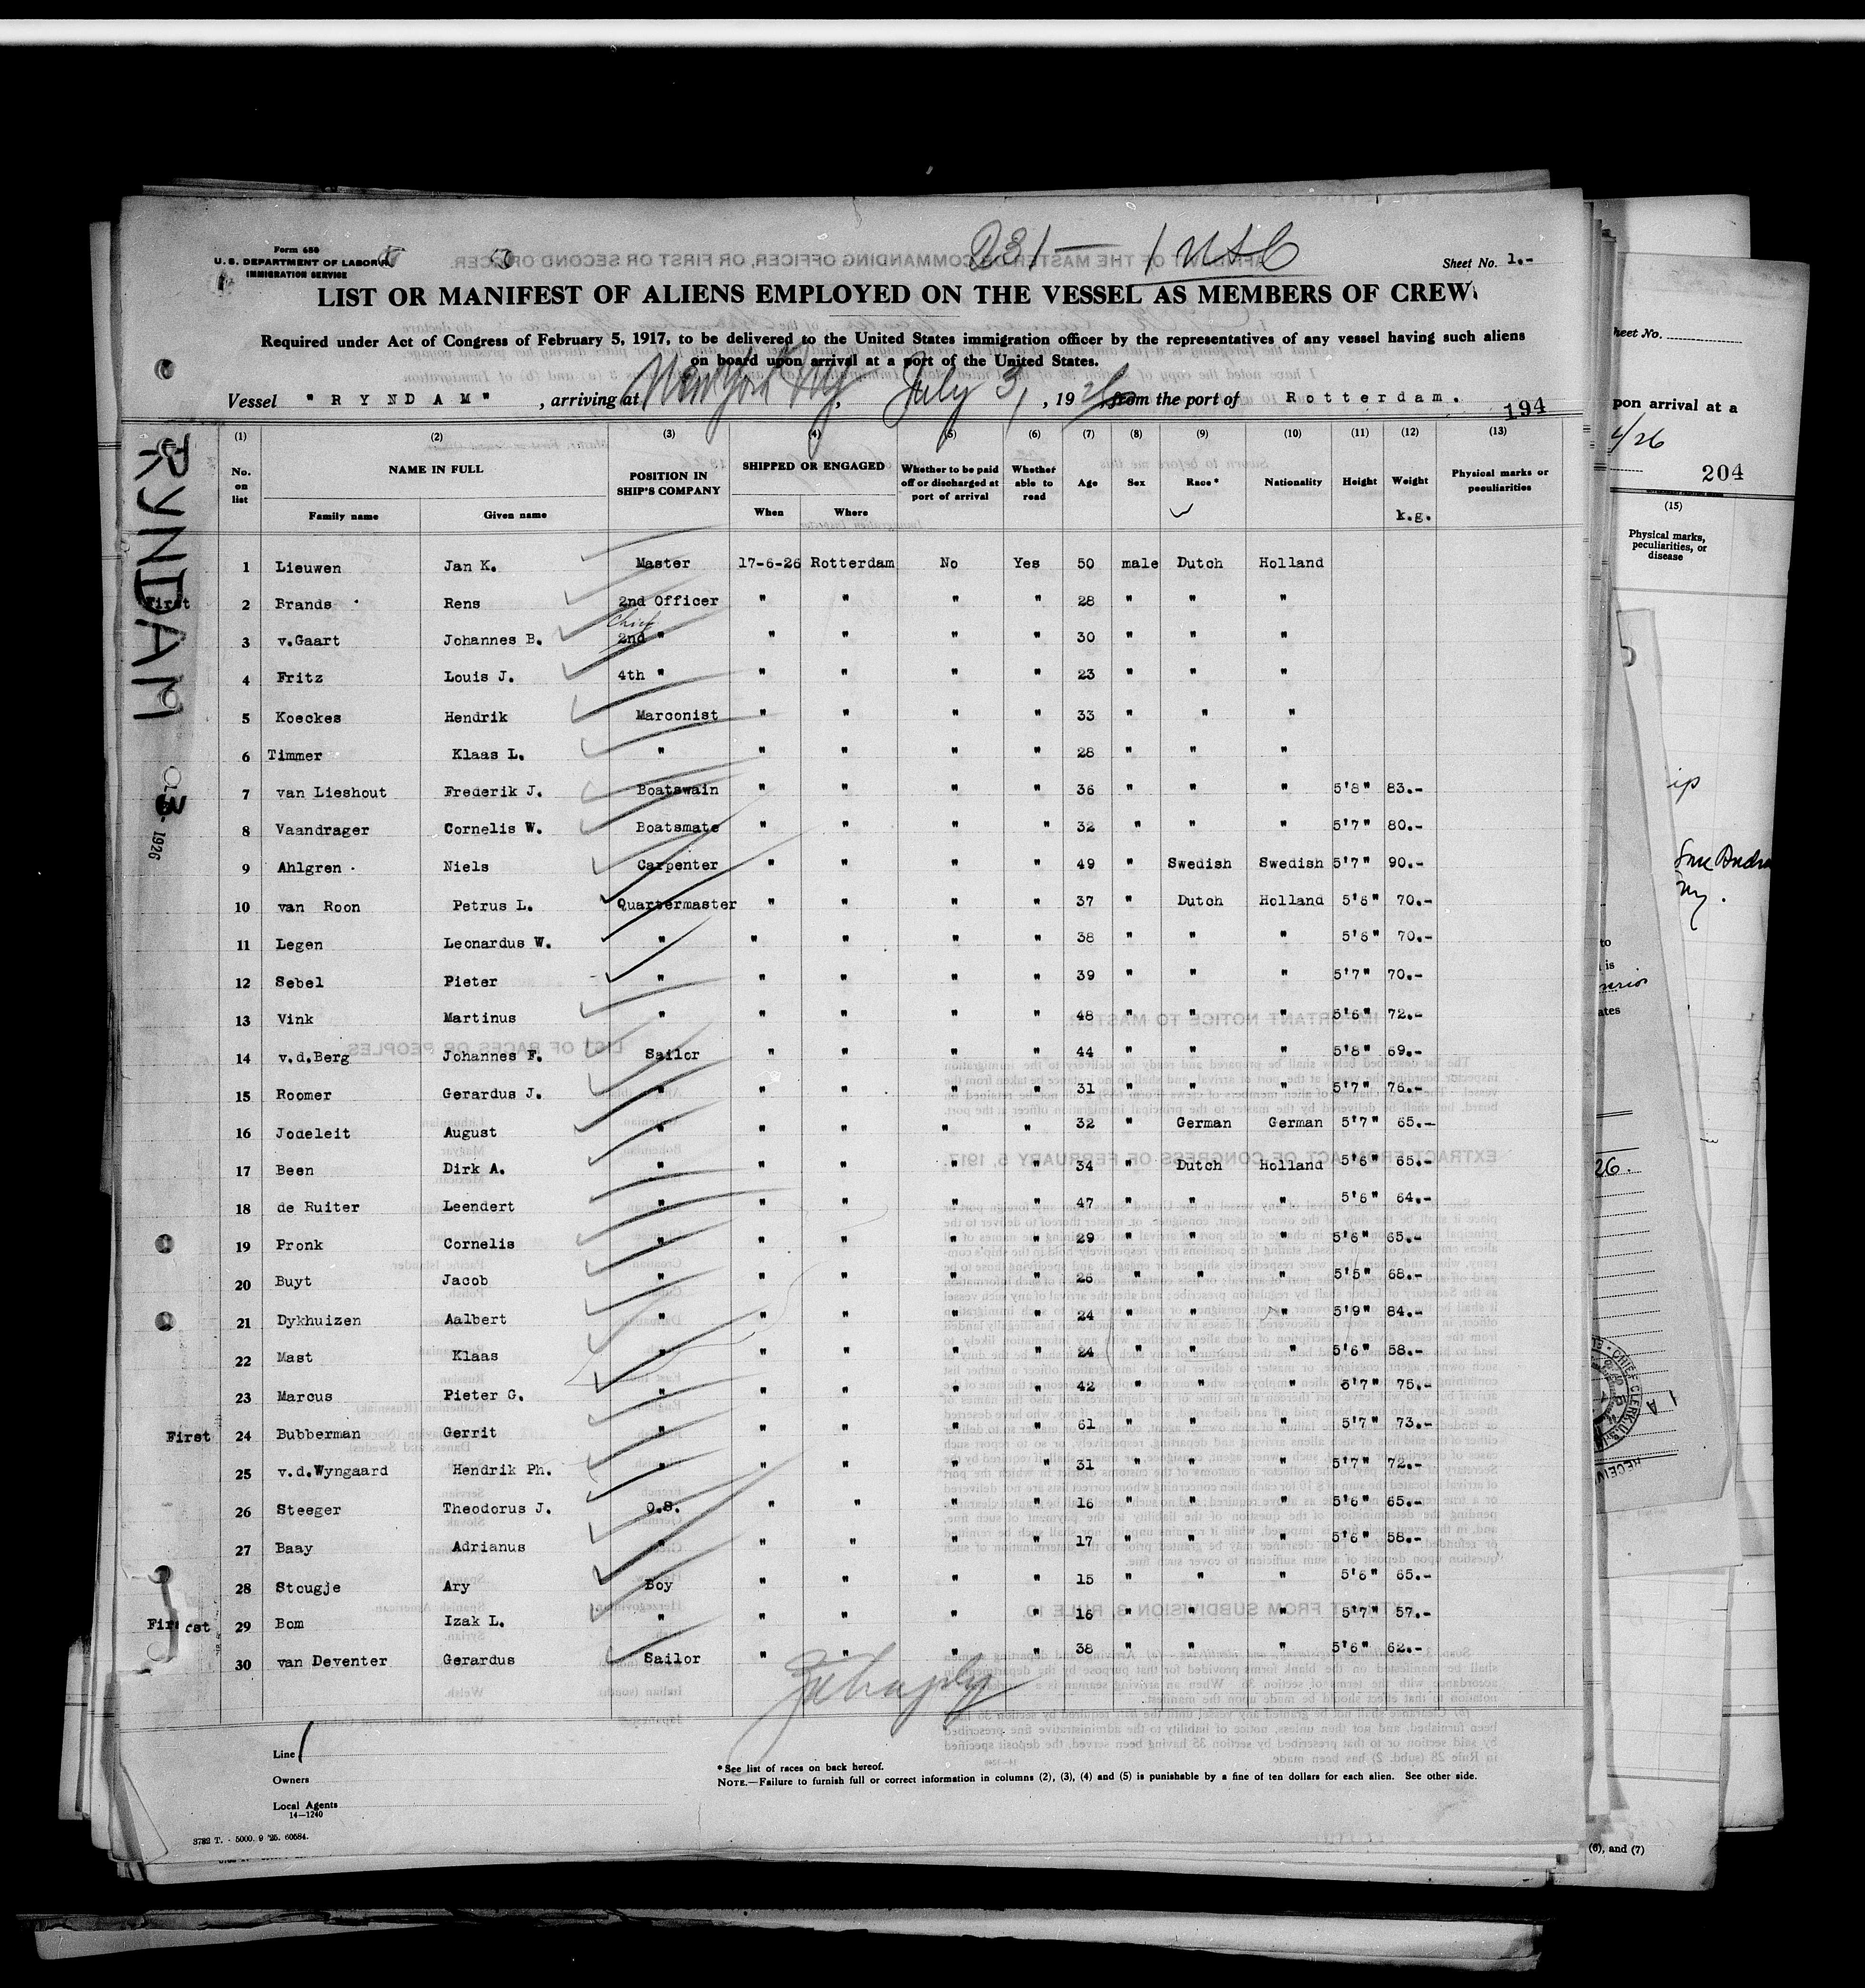 Form 680
U. S. DEPARTMENT OF LABOR
IMMIGRATION SERVICE
231 — 1 USC
Sheet No. 1.-
LIST OR MANIFEST OF ALIENS EMPLOYED ON THE VESSEL AS MEMBERS OF CREW
Required under Act of Congress of February 5, 1917, to be delivered to the United States immigration officer by the representatives of any vessel having such aliens
on board upon arrival at a port of the United States.
Vessel "RYNDAM", arriving at New York Ny, July 3, 1926, from the port of Rotterdam.
194
(1) (2) (3) (4) (5) (6) (7) (8) (9) (10) (11) (12) (13)
No. on list NAME IN FULL POSITION IN SHIP'S COMPANY SHIPPED OR ENGAGED Whether to be paid off or discharged at port of arrival Whether able to read Age Sex Race* Nationality Height Weight Physical marks or peculiarities
Family name Given name When Where k.g.
1 Lieuwen Jan K. Master 17-6-26 Rotterdam No Yes 50 male Dutch Holland
First 2 Brands Rens 2nd Officer " " " " 28 " " "
Chief
3 v.Gaart Johannes B. 2nd " " " " " 30 " " "
4 Fritz Louis J. 4th " " " " " 23 " " "
5 Koeckes Hendrik Marconist " " " " 33 " " "
6 Timmer Klaas L. " " " " " 28 " " "
7 van Lieshout Frederik J. Boatswain " " " " 36 " " " 5'8" 83.-
8 Vaandrager Cornelis W. Boatsmate " " " " 32 " " " 5'7" 80.-
9 Ahlgren Niels Carpenter " " " " 49 " Swedish Swedish 5'7" 90.-
10 van Roon Petrus L. Quartermaster " " " " 37 " Dutch Holland 5'6" 70.-
11 Legen Leonardus W. " " " " " 38 " " " 5'6" 70.-
12 Sebel Pieter " " " " " 39 " " " 5'7" 70.-
13 Vink Martinus " " " " " 48 " " " 5'6" 72.-
14 v.d.Berg Johannes F. Sailor " " " " 44 " " " 5'8" 69.-
15 Roomer Gerardus J. " " " " " 31 " " " 5'7" 76.-
16 Jodeleit August " " " " " 32 " German German 5'7" 65.-
17 Been Dirk A. " " " " " 34 " Dutch Holland 5'6" 65.-
18 de Ruiter Leendert " " " " " 47 " " " 5'6" 64.-
19 Pronk Cornelis " " " " " 29 " " " 5'6" 65.-
20 Buyt Jacob " " " " " 26 " " " 5'5" 68.-
21 Dykhuizen Aalbert " " " " " 24 " " " 5'9" 84.-
22 Mast Klaas " " " " " 24 " " " 5'6" 58.-
23 Marcus Pieter G. " " " " " 42 " " " 5'7" 75.-
First 24 Bubberman Gerrit " " " " " 61 " " " 5'7" 73.-
25 v.d.Wyngaard Hendrik Ph. " " " " " 31 " " " 5'7" 72.-
26 Steeger Theodorus J. O.S. " " " " 16 " " " 5'6" 65.-
27 Baay Adrianus " " " " " 17 " " " 5'6" 58.-
28 Stougje Ary Boy " " " " 15 " " " 5'6" 65.-
First 29 Bom Izak L. " " " " " 16 " " " 5'7" 57.-
30 van Deventer Gerardus Sailor " " " " 38 " " " 5'6" 62.-
Line
Owners
Local Agents
14—1240
* See list of races on back hereof.
NOTE.—Failure to furnish full or correct information in columns (2), (3), (4) and (5) is punishable by a fine of ten dollars for each alien. See other side.
3782 T. - 5000. 9 '25. 60584.
RYNDAM
3
1926
heet No.
pon arrival at a
/26
204
(15)
Physical marks, peculiarities, or disease
to
is
ates
26.
CHIEF CLERK
(6), and (7)